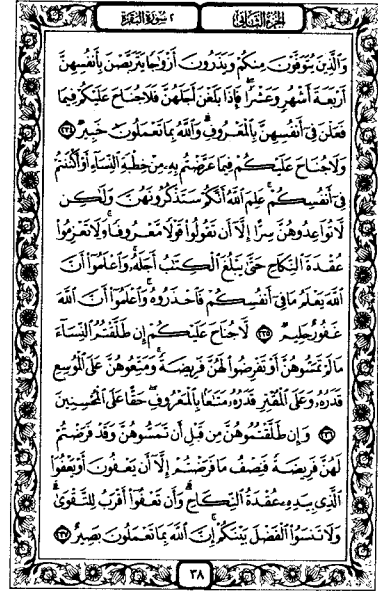 الجزء الثاني ٢ سورة البقرة
وَالَّذِينَ يُتَوَفَّوْنَ مِنكُمْ وَيَذَرُونَ أَزْوَاجًا يَتَرَبَّصْنَ بِأَنفُسِهِنَّ
أَرْبَعَةَ أَشْهُرٍ وَعَشْرًا ۖ فَإِذَا بَلَغْنَ أَجَلَهُنَّ فَلَا جُنَاحَ عَلَيْكُمْ فِيمَا
فَعَلْنَ فِي أَنفُسِهِنَّ بِالْمَعْرُوفِ ۗ وَاللَّهُ بِمَا تَعْمَلُونَ خَبِيرٌ ﴿٢٣٤﴾
وَلَا جُنَاحَ عَلَيْكُمْ فِيمَا عَرَّضْتُم بِهِ مِنْ خِطْبَةِ النِّسَاءِ أَوْ أَكْنَنتُمْ
فِي أَنفُسِكُمْ ۚ عَلِمَ اللَّهُ أَنَّكُمْ سَتَذْكُرُونَهُنَّ وَلَٰكِن
لَّا تُوَاعِدُوهُنَّ سِرًّا إِلَّا أَن تَقُولُوا قَوْلًا مَّعْرُوفًا ۚ وَلَا تَعْزِمُوا
عُقْدَةَ النِّكَاحِ حَتَّىٰ يَبْلُغَ الْكِتَٰبُ أَجَلَهُ ۚ وَاعْلَمُوا أَنَّ
اللَّهَ يَعْلَمُ مَا فِي أَنفُسِكُمْ فَاحْذَرُوهُ ۚ وَاعْلَمُوا أَنَّ اللَّهَ
غَفُورٌ حَلِيمٌ ﴿٢٣٥﴾ لَّا جُنَاحَ عَلَيْكُمْ إِن طَلَّقْتُمُ النِّسَاءَ
مَا لَمْ تَمَسُّوهُنَّ أَوْ تَفْرِضُوا لَهُنَّ فَرِيضَةً ۚ وَمَتِّعُوهُنَّ عَلَى الْمُوسِعِ
قَدَرُهُ وَعَلَى الْمُقْتِرِ قَدَرُهُ مَتَٰعًا بِالْمَعْرُوفِ ۖ حَقًّا عَلَى الْمُحْسِنِينَ
﴿٢٣٦﴾ وَإِن طَلَّقْتُمُوهُنَّ مِن قَبْلِ أَن تَمَسُّوهُنَّ وَقَدْ فَرَضْتُمْ
لَهُنَّ فَرِيضَةً فَنِصْفُ مَا فَرَضْتُمْ إِلَّا أَن يَعْفُونَ أَوْ يَعْفُوَا
الَّذِي بِيَدِهِ عُقْدَةُ النِّكَاحِ ۚ وَأَن تَعْفُوا أَقْرَبُ لِلتَّقْوَىٰ ۚ
وَلَا تَنسَوُا الْفَضْلَ بَيْنَكُمْ ۚ إِنَّ اللَّهَ بِمَا تَعْمَلُونَ بَصِيرٌ ﴿٢٣٧﴾
٣٨